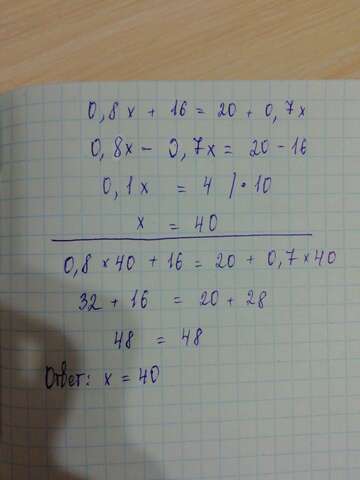 0,8x + 16 = 20 + 0,7x
0,8x - 0,7x = 20 - 16
0,1x = 4 /•10
x = 40
0,8×40 + 16 = 20 + 0,7×40
32 + 16 = 20 + 28
48 = 48
Ответ: x = 40